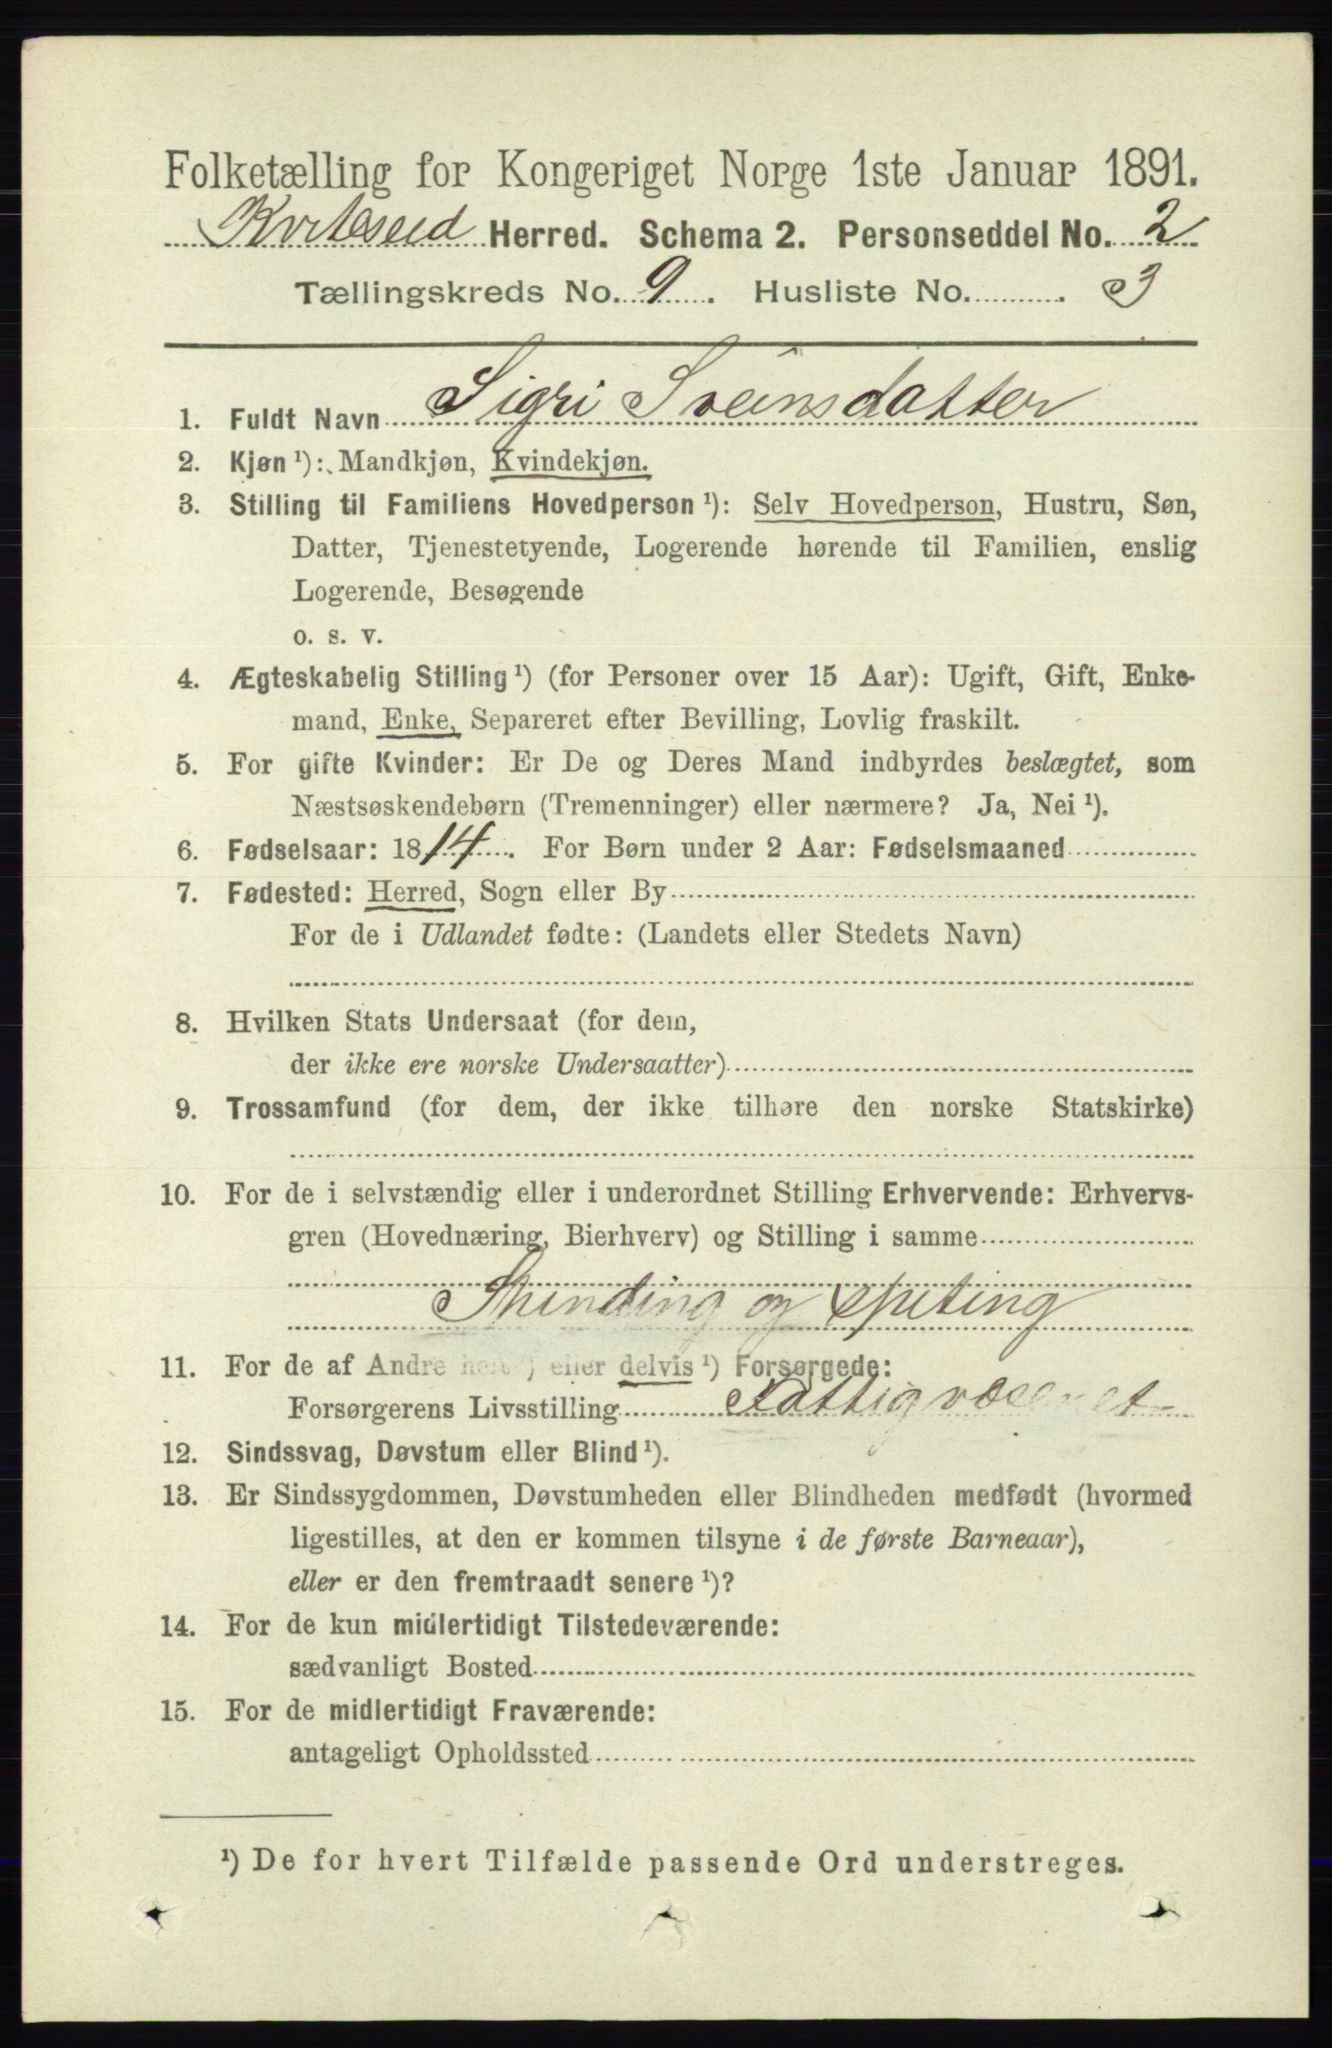 Folketælling for Kongeriget Norge 1ste Januar 1891.
Kviteseid Herred. Schema 2. Personseddel No. 2
Tællingskreds No. 9. Husliste No. . 3
1. Fuldt Navn Sigri Sveinsdatter
2. Kjøn ¹): Mandkjøn, Kvindekjøn.
3. Stilling til Familiens Hovedperson ¹): Selv Hovedperson, Hustru, Søn,
Datter, Tjenestetyende, Logerende hørende til Familien, enslig
Logerende, Besøgende
o. s. v.
4. Ægteskabelig Stilling ¹) (for Personer over 15 Aar): Ugift, Gift, Enke-
mand, Enke, Separeret efter Bevilling, Lovlig fraskilt.
5. For gifte Kvinder: Er De og Deres Mand indbyrdes beslægtet, som
Næstsøskendebørn (Tremenninger) eller nærmere? Ja, Nei ¹).
6. Fødselsaar: 1814. For Børn under 2 Aar: Fødselsmaaned
7. Fødested: Herred, Sogn eller By
For de i Udlandet fødte: (Landets eller Stedets Navn)
8. Hvilken Stats Undersaat (for dem,
der ikke ere norske Undersaatter)
9. Trossamfund (for dem, der ikke tilhøre den norske Statskirke)
10. For de i selvstændig eller i underordnet Stilling Erhvervende: Erhvervs-
gren (Hovednæring, Bierhverv) og Stilling i samme
og spiting
11. For de af Andre helt ¹) eller delvis ¹) Forsørgede:
Forsørgerens Livsstilling Fattigvæsenet
12. Sindssvag, Døvstum eller Blind ¹).
13. Er Sindssygdommen, Døvstumheden eller Blindheden medfødt (hvormed
ligestilles, at den er kommen tilsyne i de første Barneaar),
eller er den fremtraadt senere ¹)?
14. For de kun midlertidigt Tilstedeværende:
sædvanligt Bosted
15. For de midlertidigt Fraværende:
antageligt Opholdssted
¹) De for hvert Tilfælde passende Ord understreges.